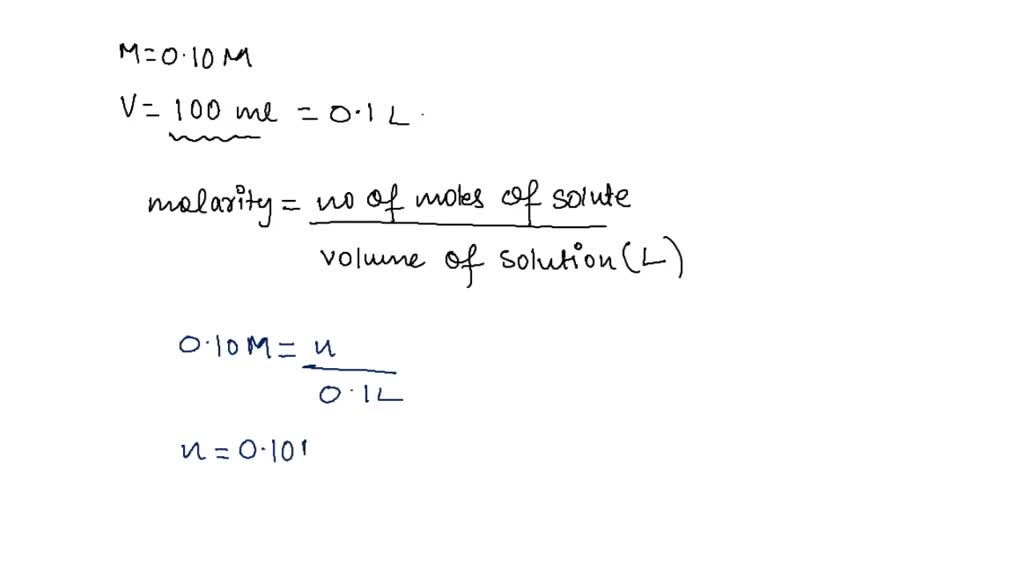 M=0.10 M
V= 100 ml = 0.1 L
molarity = no of moles of solute
volume of solution (L)
0.10 M = n
0.1 L
n = 0.10